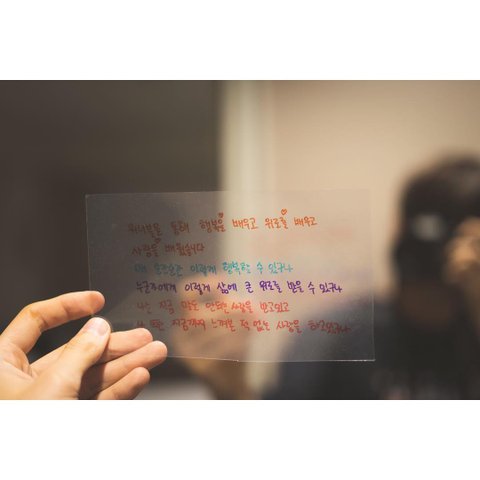 워너블을 통해 행복을 배우고 위로를 배우고
사랑을 배웠습니다
매 순간순간 이렇게 행복할 수 있구나
누군가에게 이렇게 삶에 큰 위로를 받을 수 있구나
난 지금 말도 안되는 사랑을 받고있고
나 또한 지금까지 느껴본 적 없는 사랑을 하고있구나